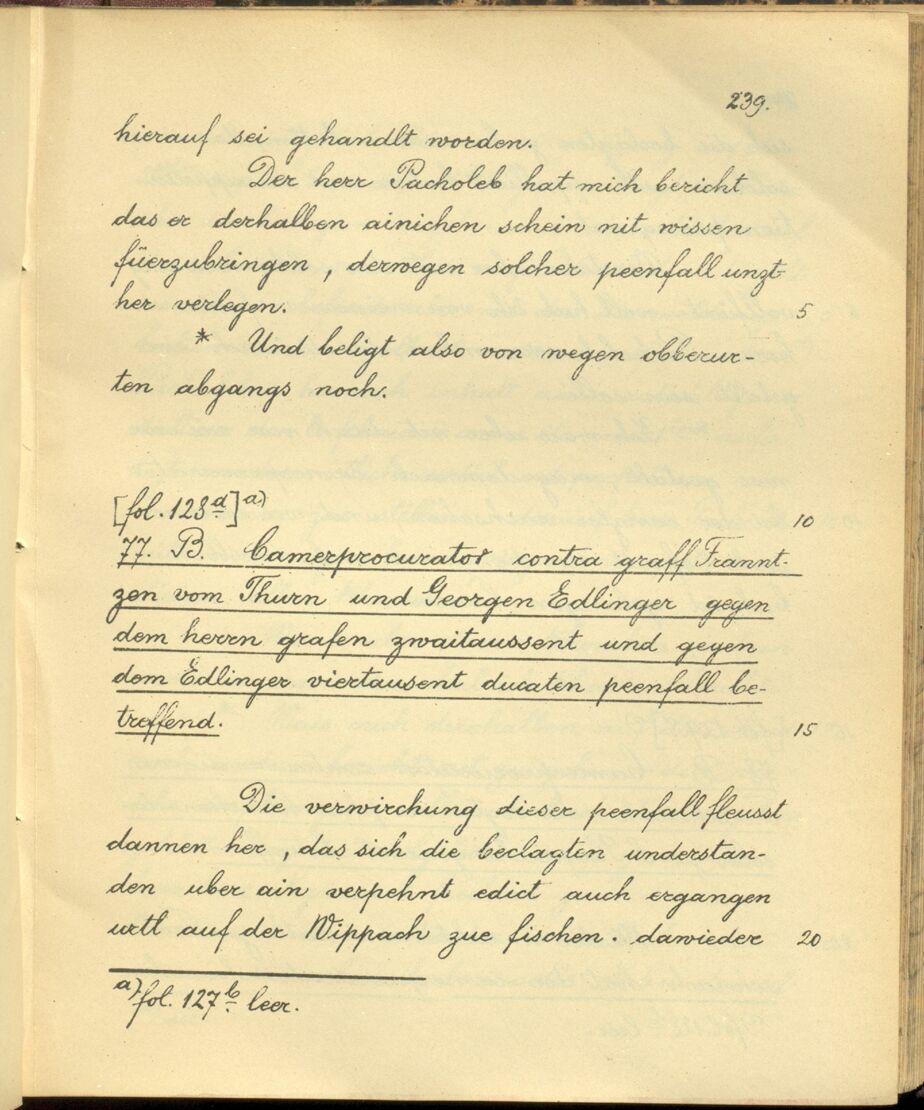 239.
hierauf sei gehandlt worden.
Der herr Pacholeb hat mich bericht
das er derhalben ainichen schein nit wissen
füerzubringen, derwegen solcher peenfall unzt-
her verlegen. 5
* Und beligt also von wegen obberur-
ten abgangs noch.
[fol. 128a]a) 10
77. B. Camerprocurator contra graff Frannt-
zen vom Thurn und Georgen Edlinger gegen
dem herrn grafen zwaitaussent und gegen
dem Edlinger viertausent ducaten peenfall be-
treffend. 15
Die verwirchung dieser peenfall fleusst
dannen her, das sich die beclagten understan-
den uber ain verpehnt edict auch ergangen
urtl auf der Wippach zue fischen. dawieder 20
a) fol. 127b leer.